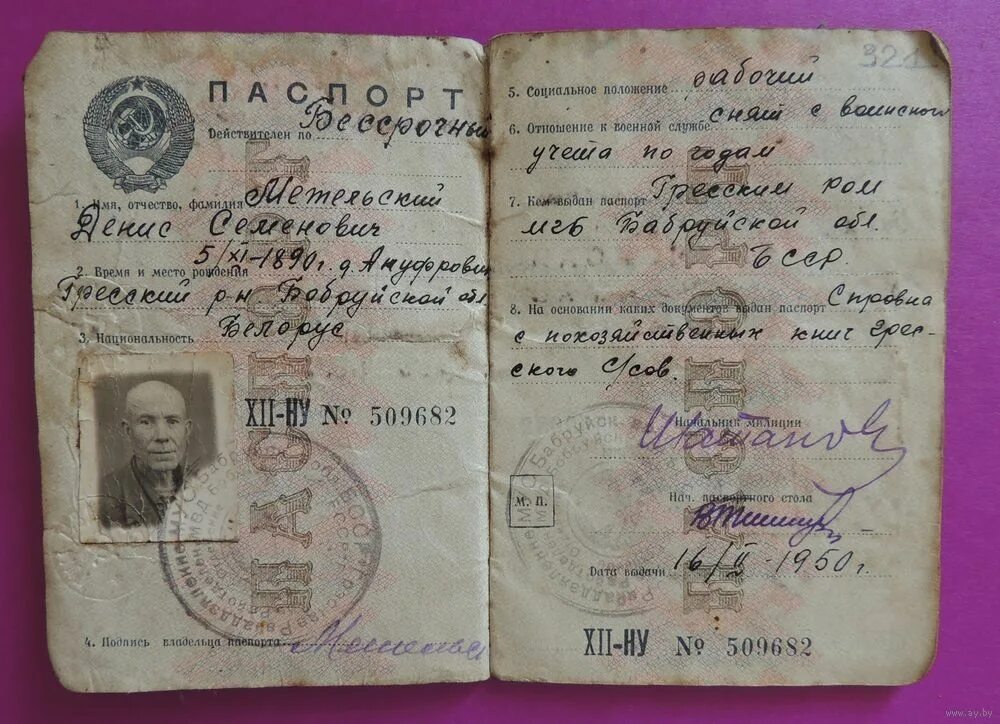 ПАСПОРТ
Действителен по Бессрочный
1. Имя, отчество, фамилия Метельский
Денис Семенович
5/XI-1890г. д. Ануфрович
2. Время и место рождения
Гресский р-н. Бобруйской обл
3. Национальность Белорус
XII-НУ № 509682
4. Подпись владельца паспорта
321
5. Социальное положение рабочий
6. Отношение к военной службе снят с воинского
учета по годам
7. Кем выдан паспорт Гресским ром
МГБ Бабруйской обл.
БССР.
8. На основании каких документов выдан паспорт Справка
с похозяйственных книг Грес-
ского с/сов.
Начальник милиции
М. П.
Нач. паспортного стола
Дата выдачи 16/II-1950г.
XII-НУ № 509682
www.ay.by